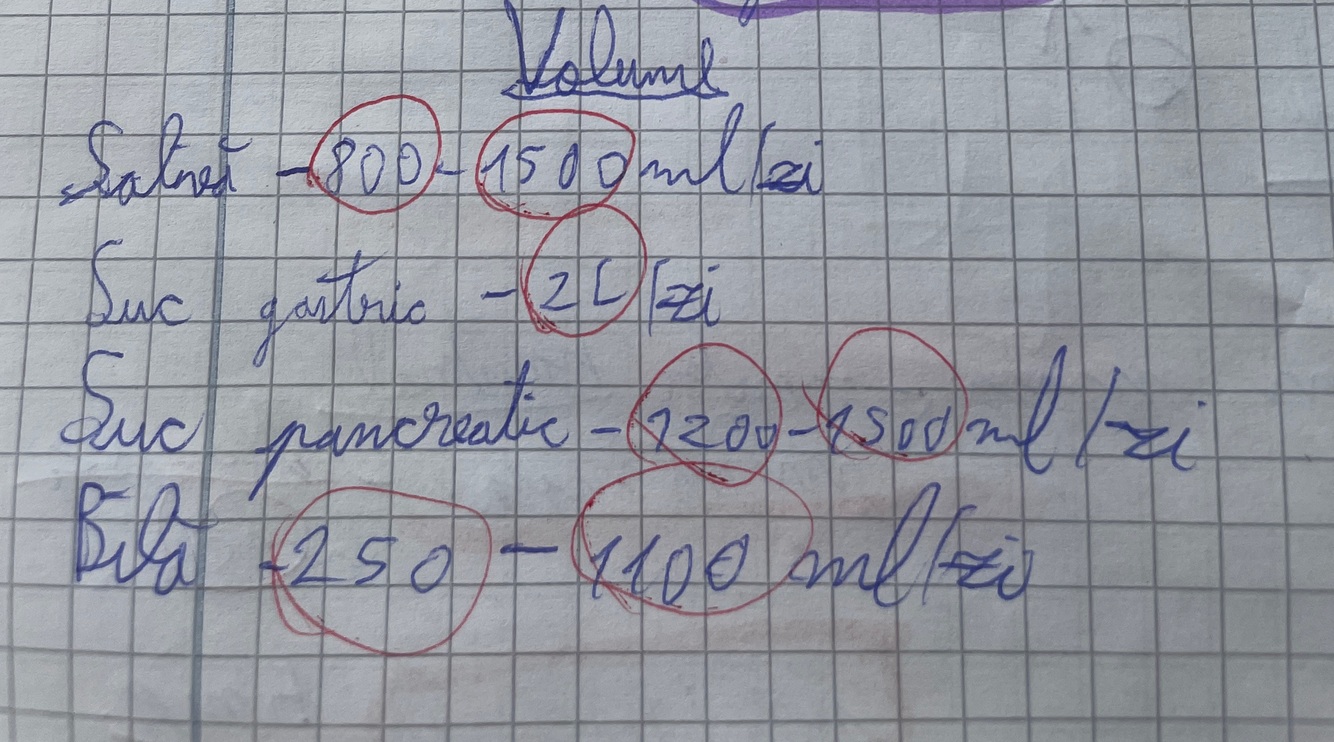 Volume
Salivă - 800 - 1500 ml/zi
Suc gastric - 2L/zi
Suc pancreatic - 1200 - 1500 ml/zi
Bilă - 250 - 1100 ml/zi